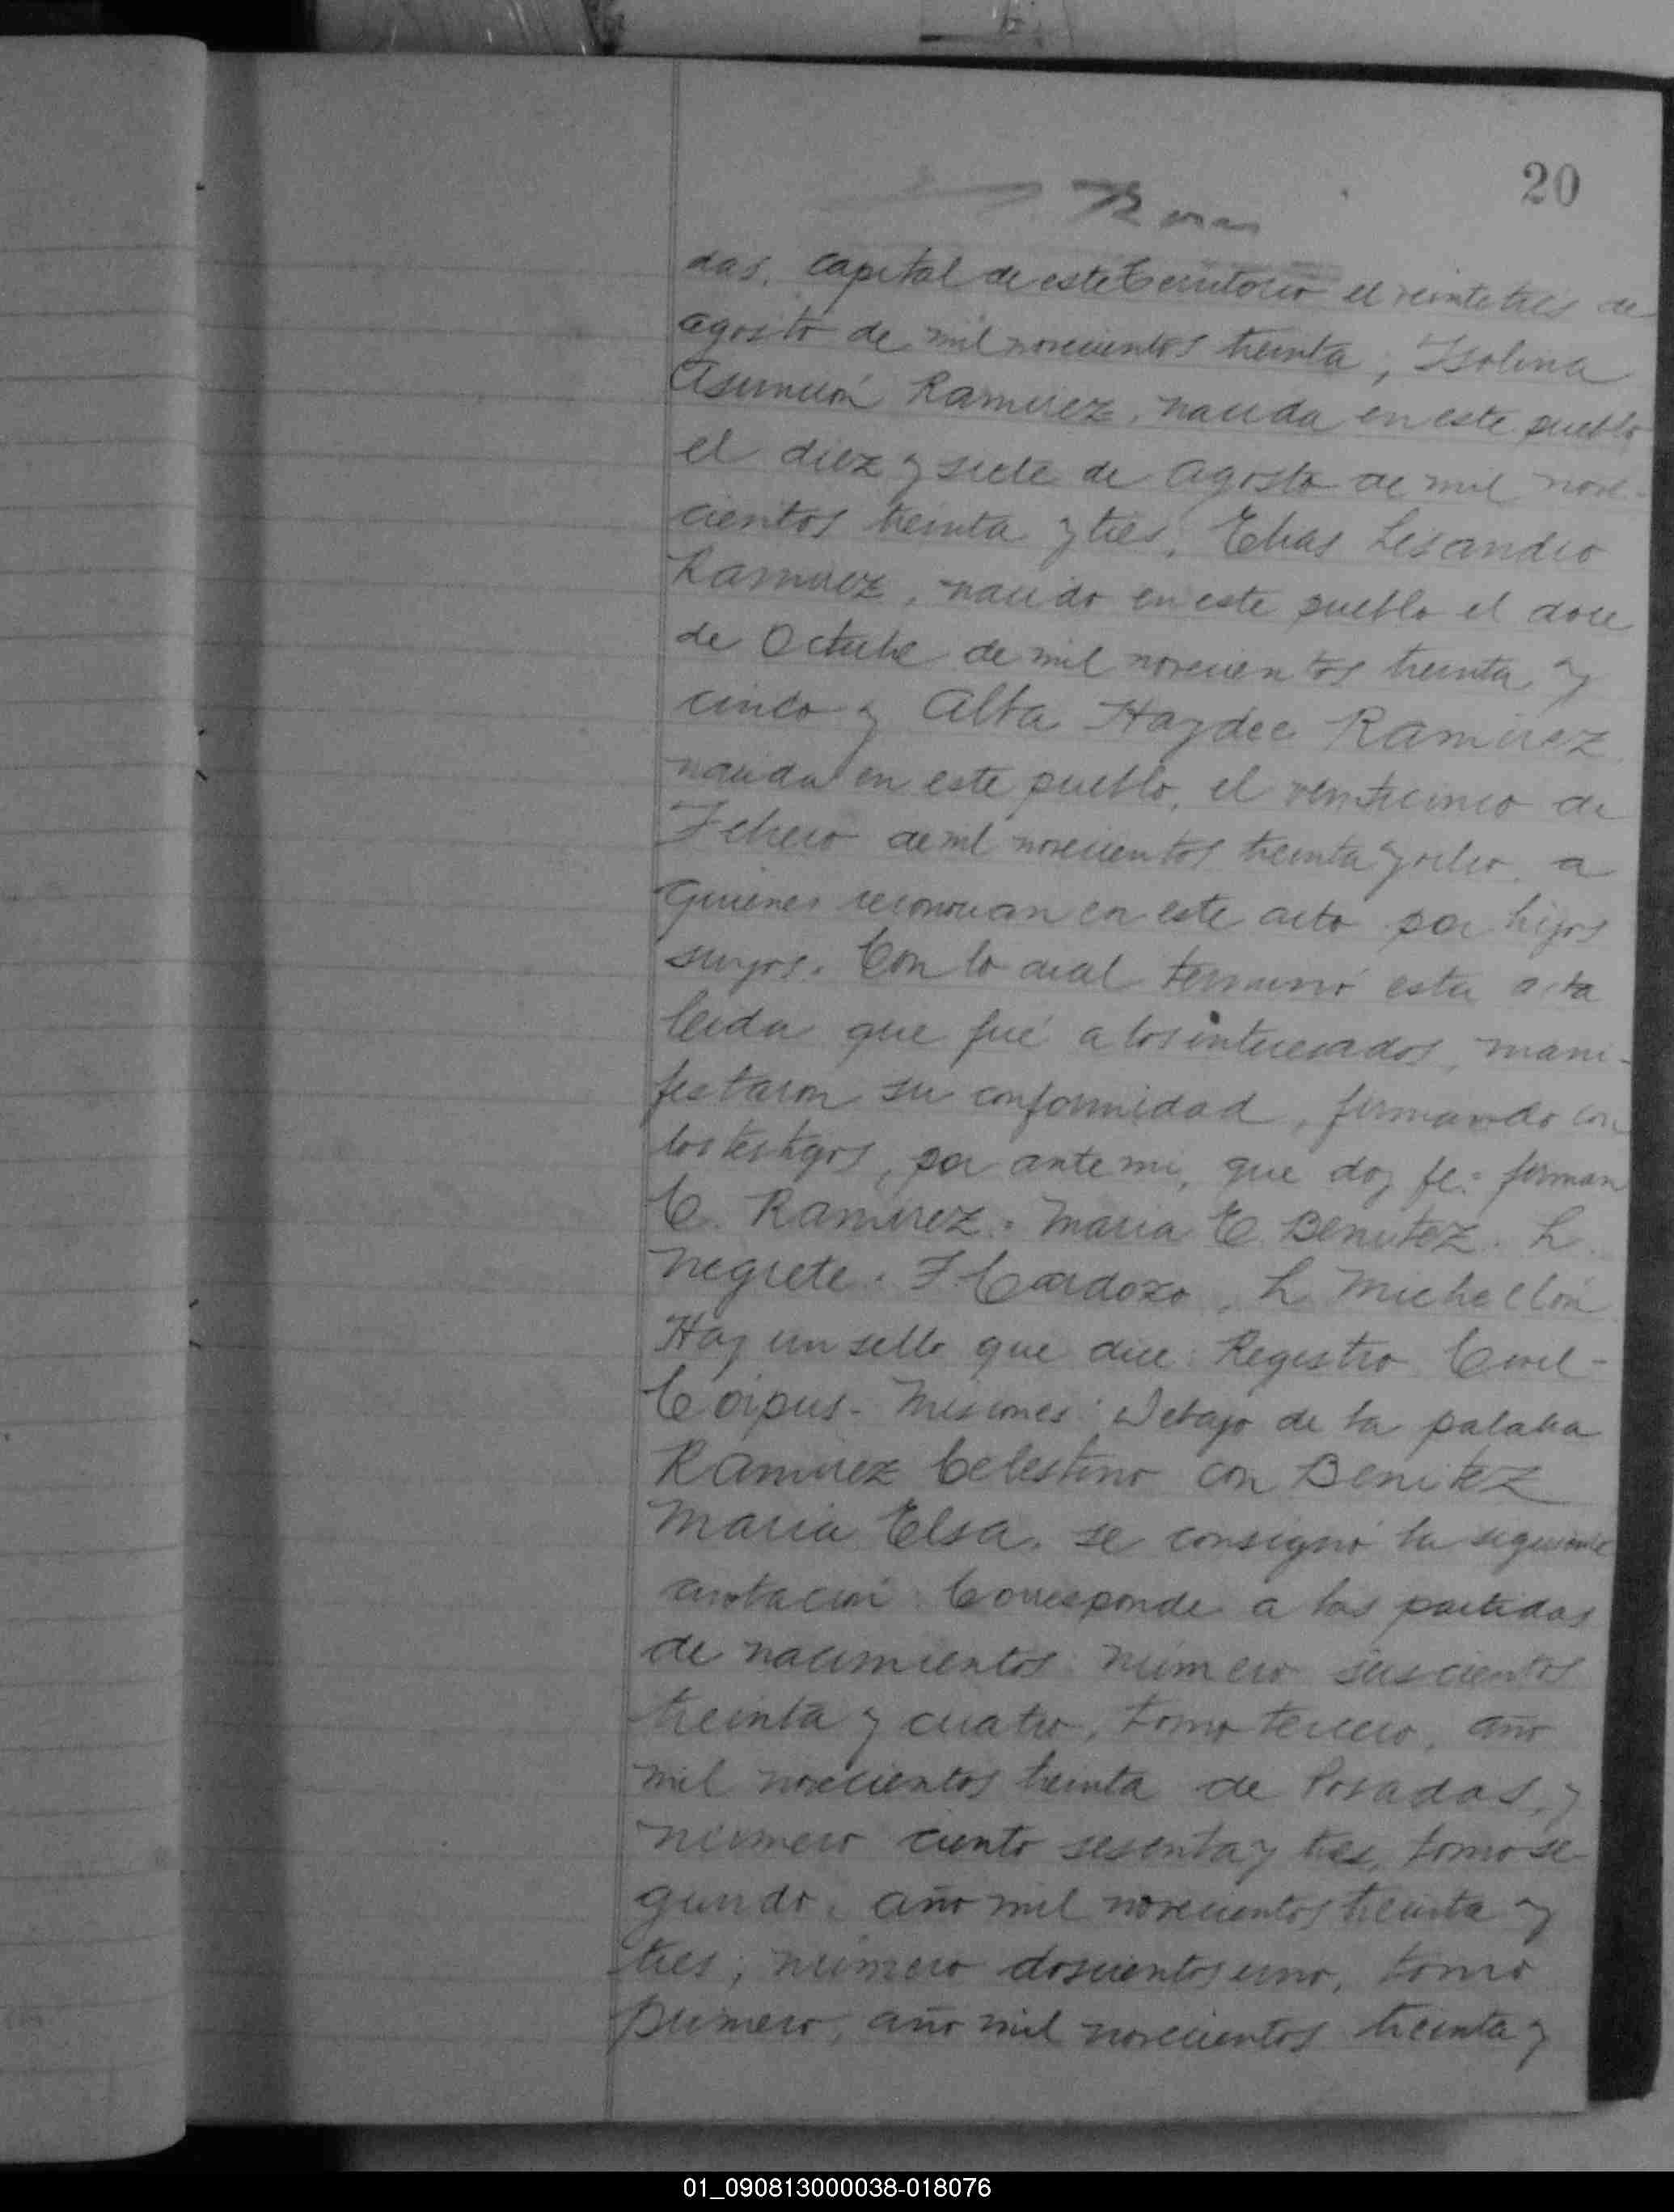 20
das, capital de este Territorio el veintetres de
agosto de mil novecientos treinta, Isolina
Asunción Ramirez, nacida en este pueblo
el diez y siete de agosto de mil nove-
cientos treinta y tres, Elias Lisandro
Ramirez, nacido en este pueblo el doce
de Octubre de mil novecientos treinta y
cinco y Alba Haydee Ramirez
nacida en este pueblo, el veinticinco de
Febrero de mil novecientos treinta y ocho, a
quienes reconocian en este acto por hijos
suyos. Con lo cual terminó esta acta
leida que fué a los interesados, mani-
festaron su conformidad, firmando con
los testigos, por ante mi, que doy fe: firman
C. Ramirez. Maria E. Benitez. L.
Negrete. F. Cardozo, L. Michellón
Hay un sello que dice: Registro Civil-
Corpus- Misiones: Debajo de la palabra
Ramirez Celestino con Benitez
Maria Elsa, se consignó la siguiente
anotacion: Corresponde a las partidas
de nacimientos: número seiscientos
treinta y cuatro, tomo tercero, año
mil novecientos treinta de Posadas, y
número ciento sesenta y tres, tomo se-
gundo, año mil novecientos treinta y
tres; número doscientos uno, tomo
primero, año mil novecientos treinta y
01_090813000038-018076